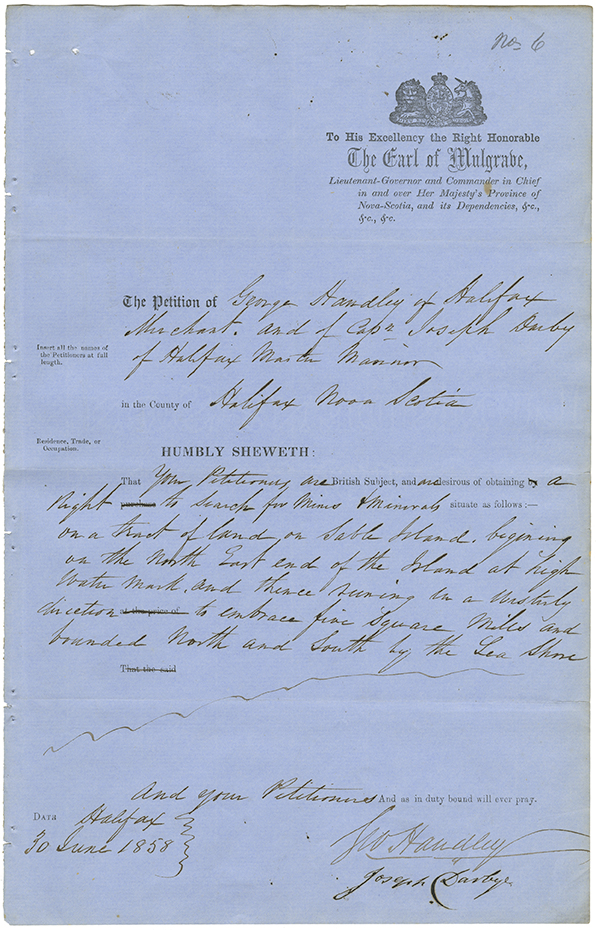 No. 6
To His Excellency the Right Honorable
The Earl of Mulgrave,
Lieutenant-Governor and Commander in Chief
in and over Her Majesty's Province of
Nova-Scotia, and its Dependencies, &c.,
&c., &c.
The Petition of George Handley of Halifax
Merchant. and of Capn Joseph Darby
of Halifax Master Marinor
Insert all the names of
the Petitioners at full
length.
in the County of Halifax Nova Scotia
Residence, Trade, or
Occupation.
HUMBLY SHEWETH:
That Your Petitioners are British Subject, and are desirous of obtaining by a
Right purchase to search for Mines & Minerals situate as follows:—
on a tract of land on Sable Island. begining
on the North East end of the Island at high
Water mark. and thence runing in a Westerly
direction at the price of to embrace five Square Miles and
bounded North and South by the Sea Shore
That the said
And your Petitioners And as in duty bound will ever pray.
DATA Halifax
30 June 1858
Geo Handley
Joseph Darbye